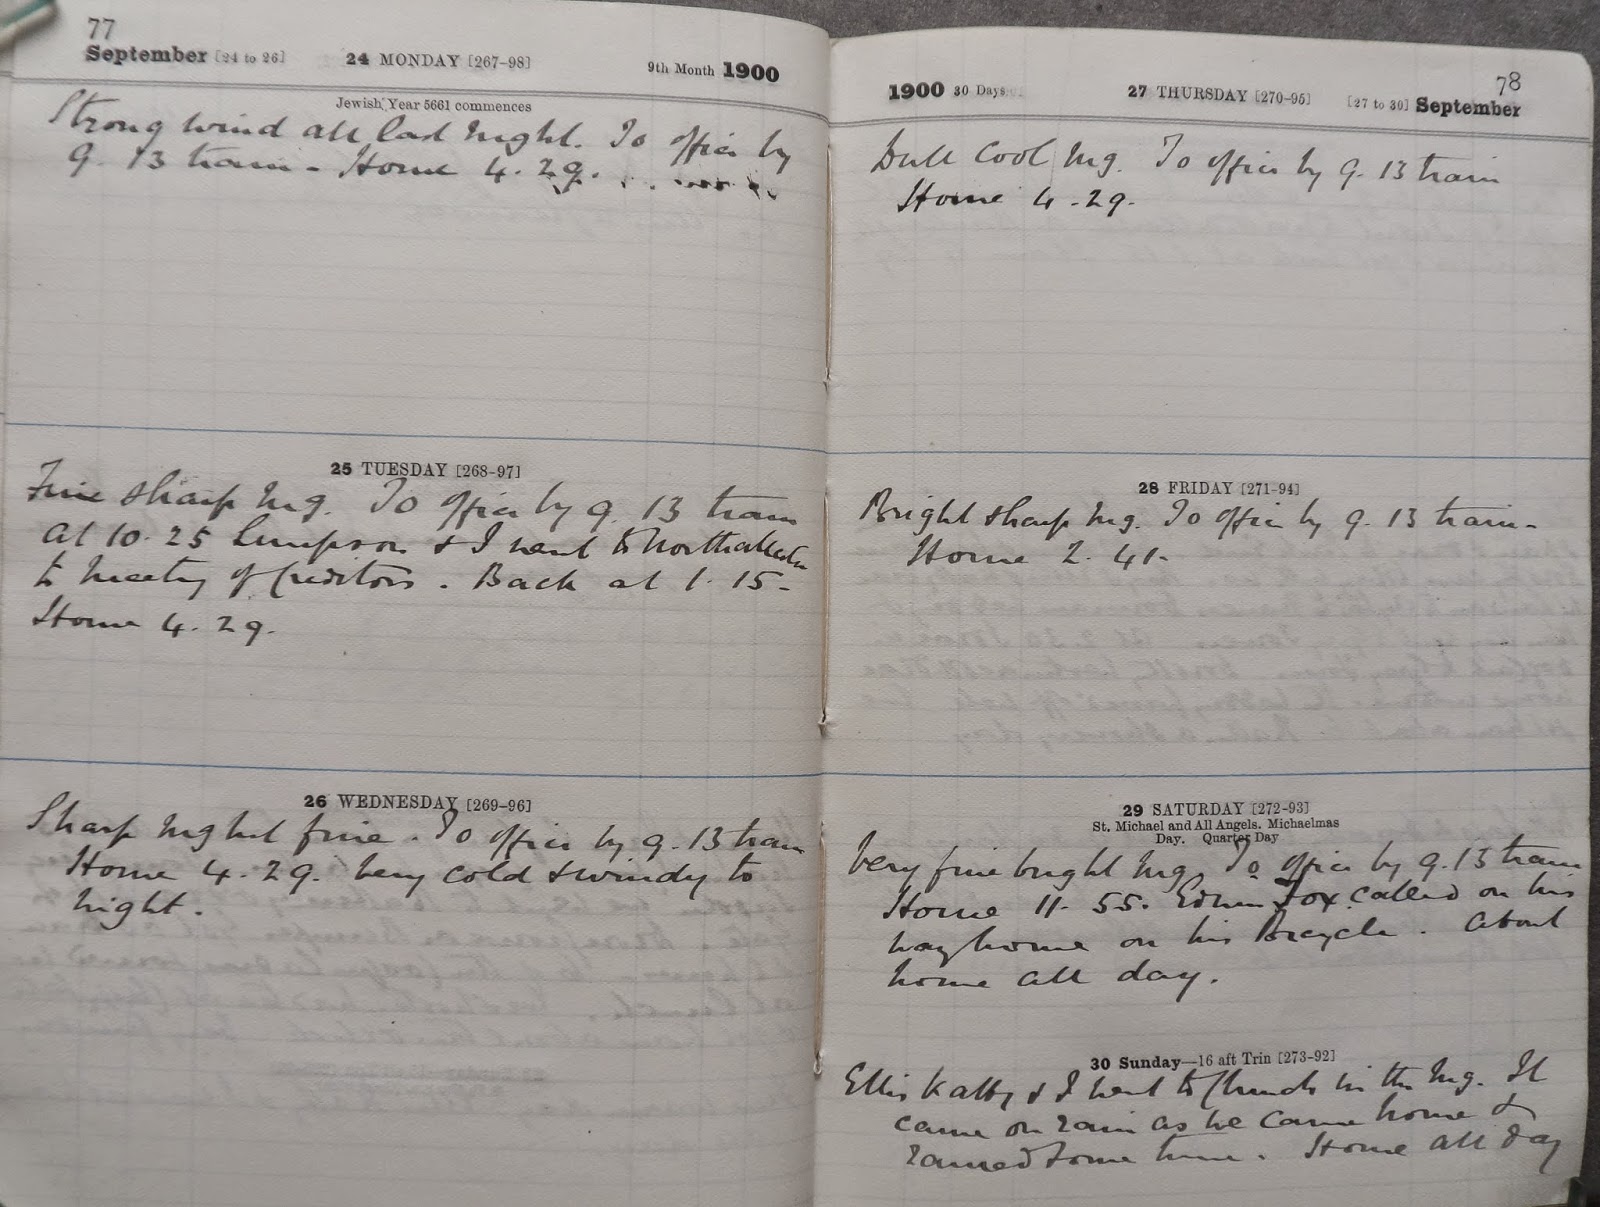 77
September [24 to 26] 24 MONDAY [267-98] 9th Month 1900
Jewish Year 5661 commences
Strong wind all last night. To office by
9.13 train - Home 4.29.
25 TUESDAY [268-97]
Fine sharp mg. To office by 9.13 train
at 10.25 & I went to Northallerton
to meeting of Creditors. Back at 1.15-
Home 4.29.
26 WEDNESDAY [269-96]
Sharp mg but fine. To office by 9.13 train
Home 4.29. Very cold & windy to
night.
78
1900 30 Days 27 THURSDAY [270-95] [27 to 30] September
Dull cool mg. To office by 9.13 train
Home 4.29.
28 FRIDAY [271-94]
Bright sharp mg. To office by 9.13 train-
Home 2.41-
29 SATURDAY [272-93]
St. Michael and All Angels. Michaelmas
Day. Quarter Day
Very fine bright mg. To office by 9.13 train
Home 11.55. Edwin Fox called on his
way home on his Bicycle. About
home all day.
30 Sunday—16 aft Trin [273-92]
Ellis Katty & I went to Church in the mg. It
came on rain as we came home &
rained some time. Home all day